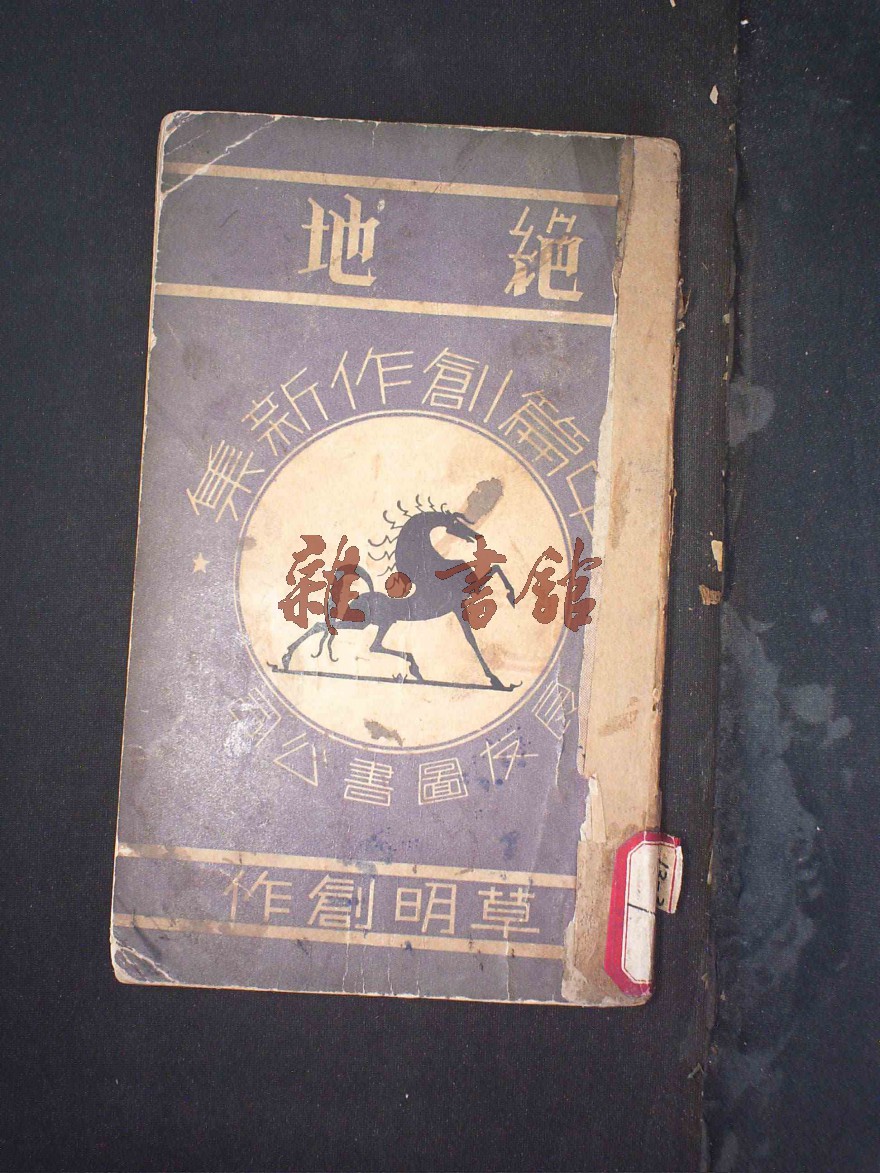 絕地
中篇創作新集
雜·書館
良友圖書公司
草明創作